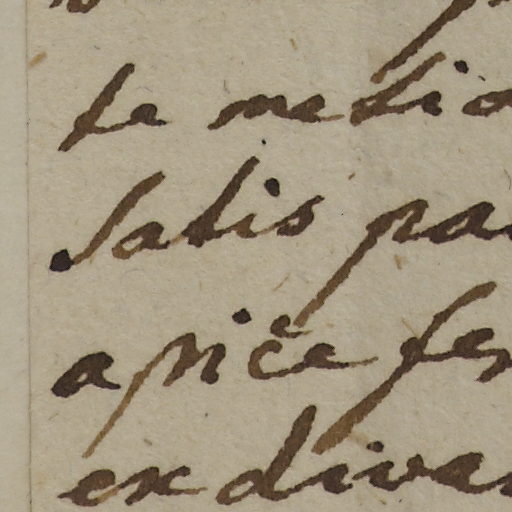 te medio
satis pa
apice fer
ex divar